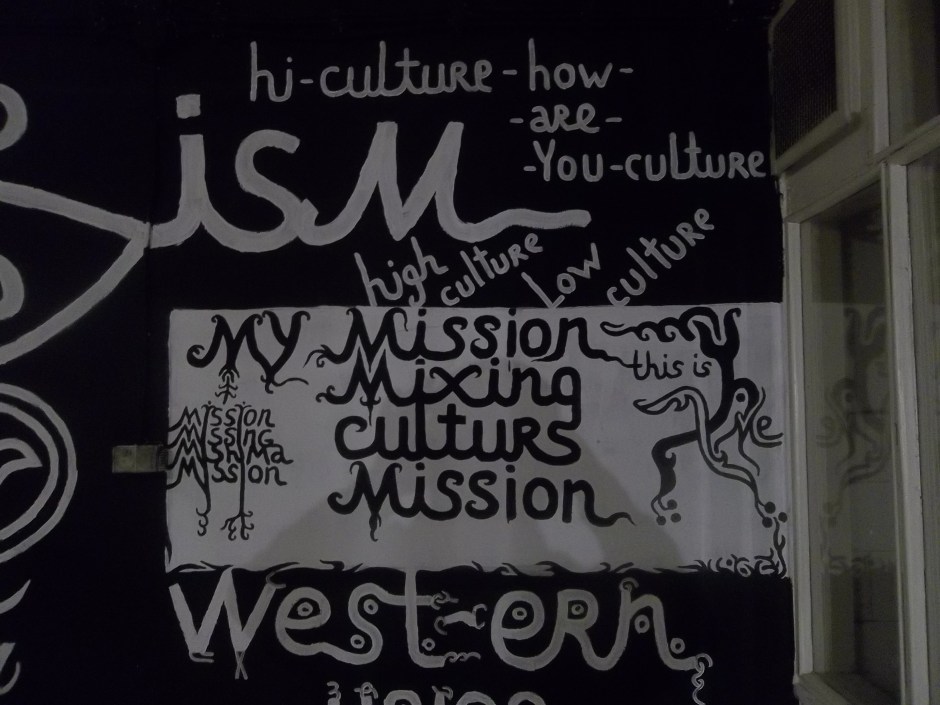 hi-culture-how-
-are-
-You-culture
ism
high culture Low culture
My Mission my
this is
Me
Mixing
culturs
Mission
Mission
Missing
Mish Ma
Mission
West-ern